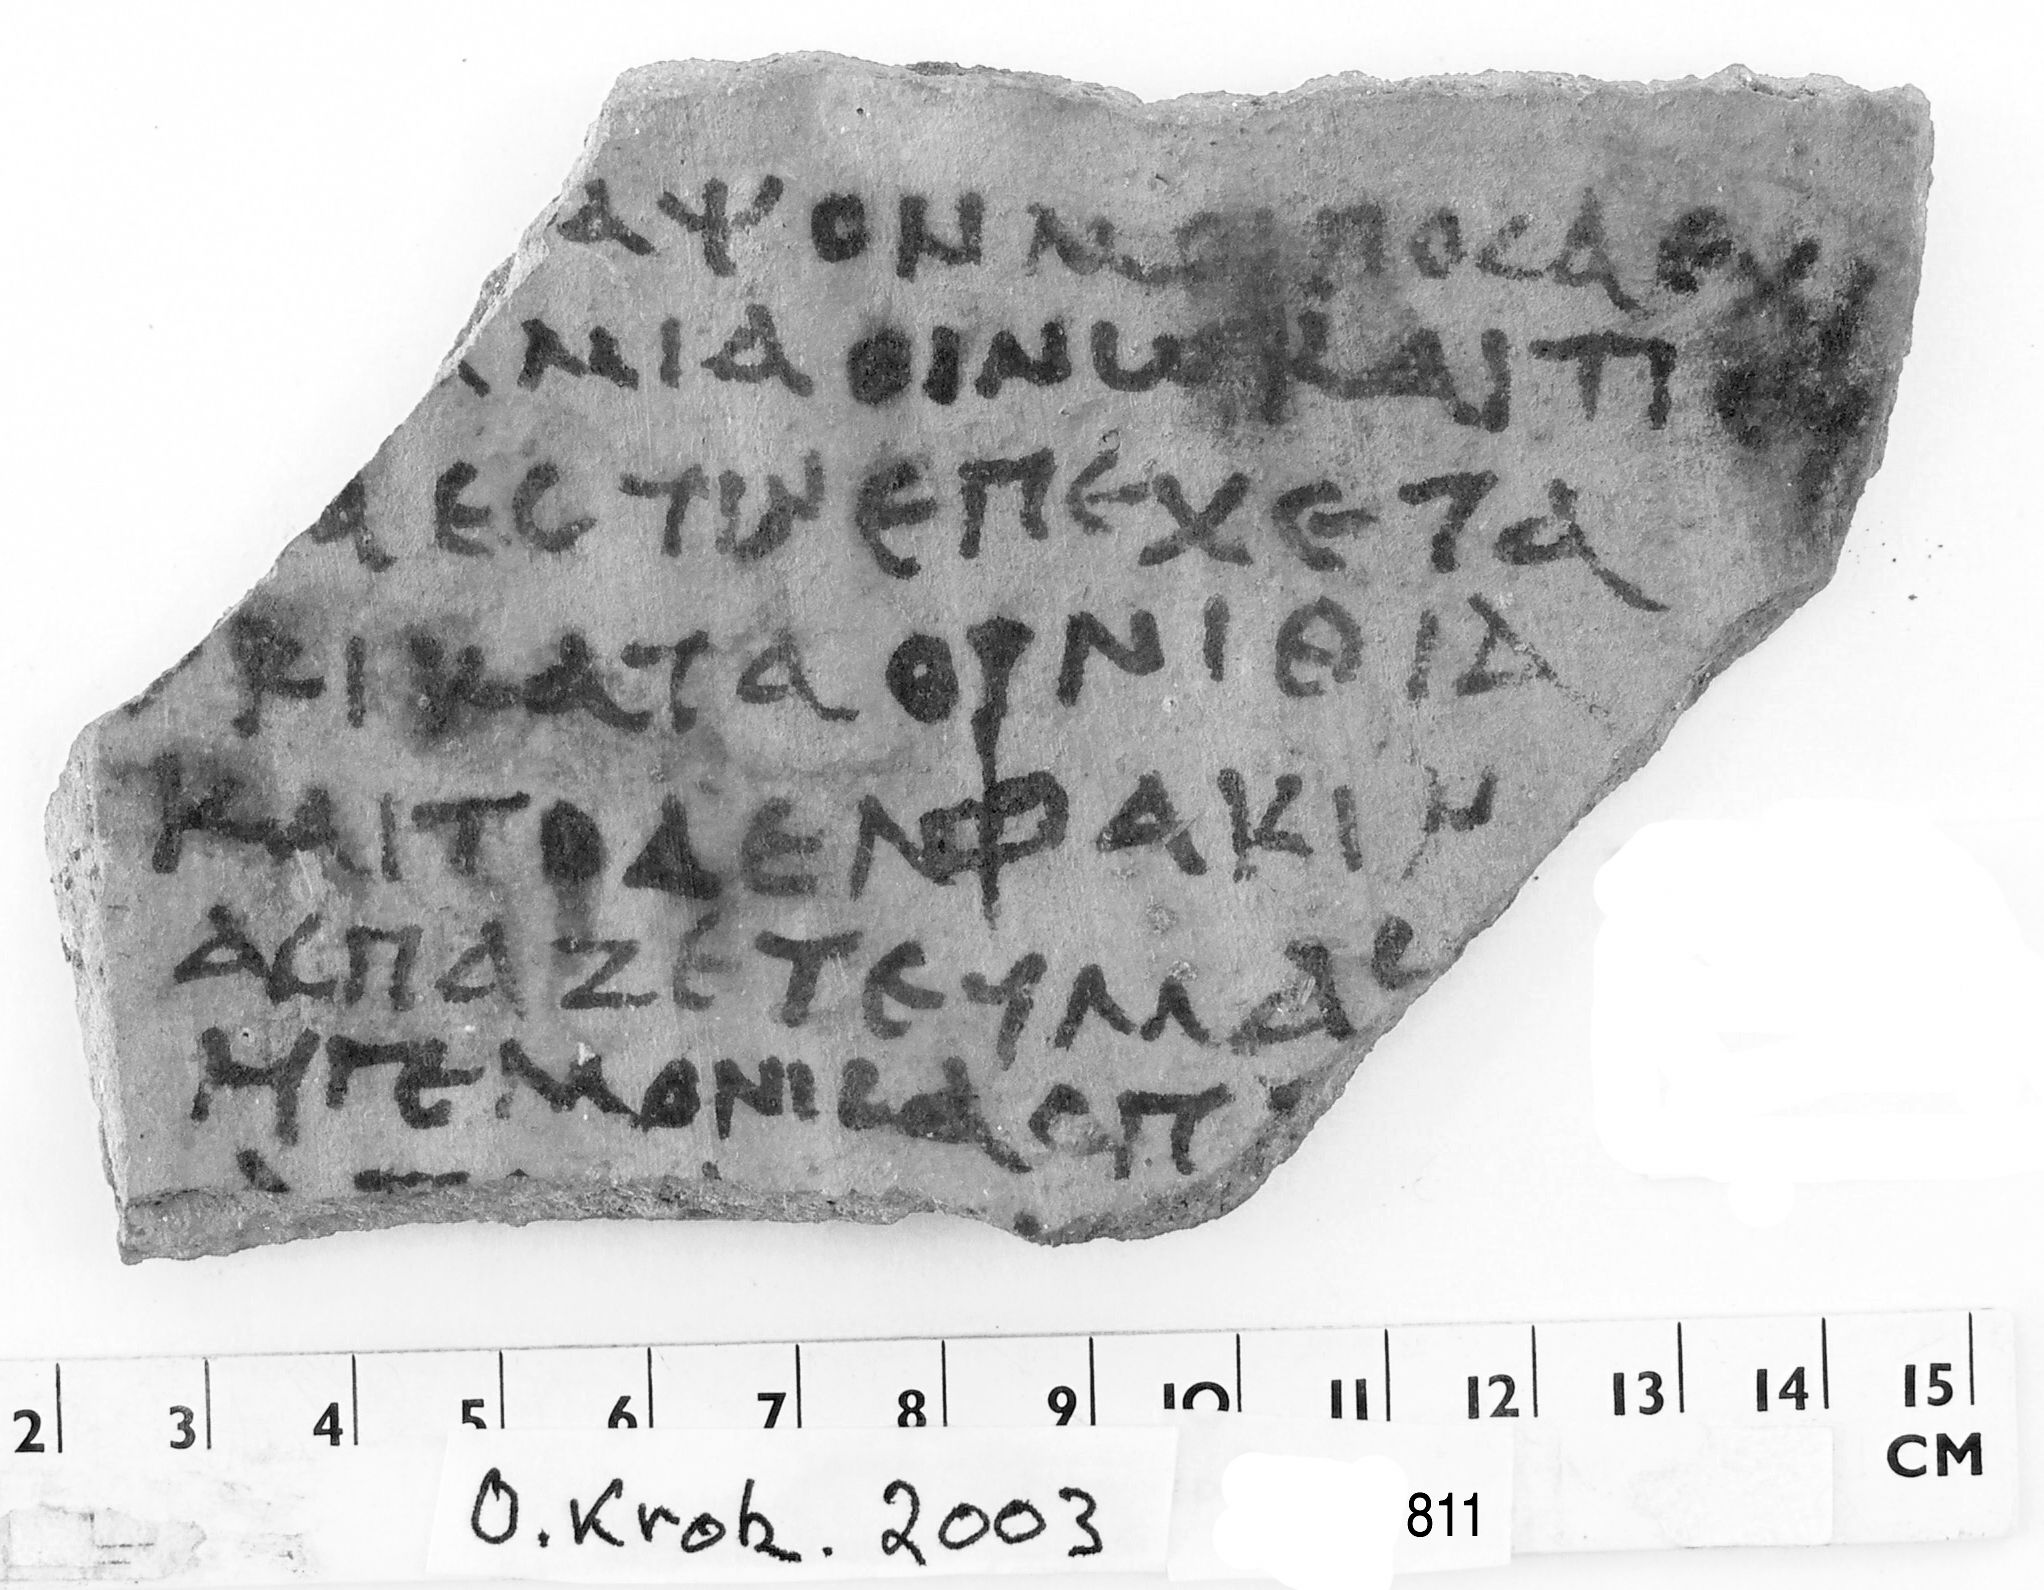 αψονμο ποσαεχι
μιαοινω και π
α εστιν επεχετα
κι κατα ορνιθια
και το δενφακιν
ασπαζετε υμας
ηπεμονικας π
2 3 4 5 6 7 8 9 10 11 12 13 14 15
CM
O. Krok. 2003 811